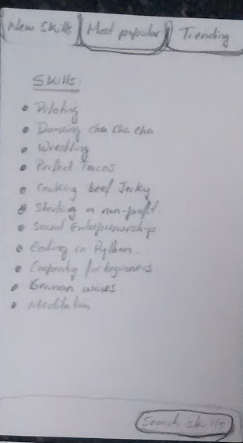 New Skills
Most popular
Trending
Skills:
Piloting
Dancing cha cha cha
Wrestling
Perfect Tacos
Cooking beef Jerky
Starting a non-profit
Social Entrepreneurship
Coding in Python
Carpentry for beginners
German wines
Meditation
Search skills